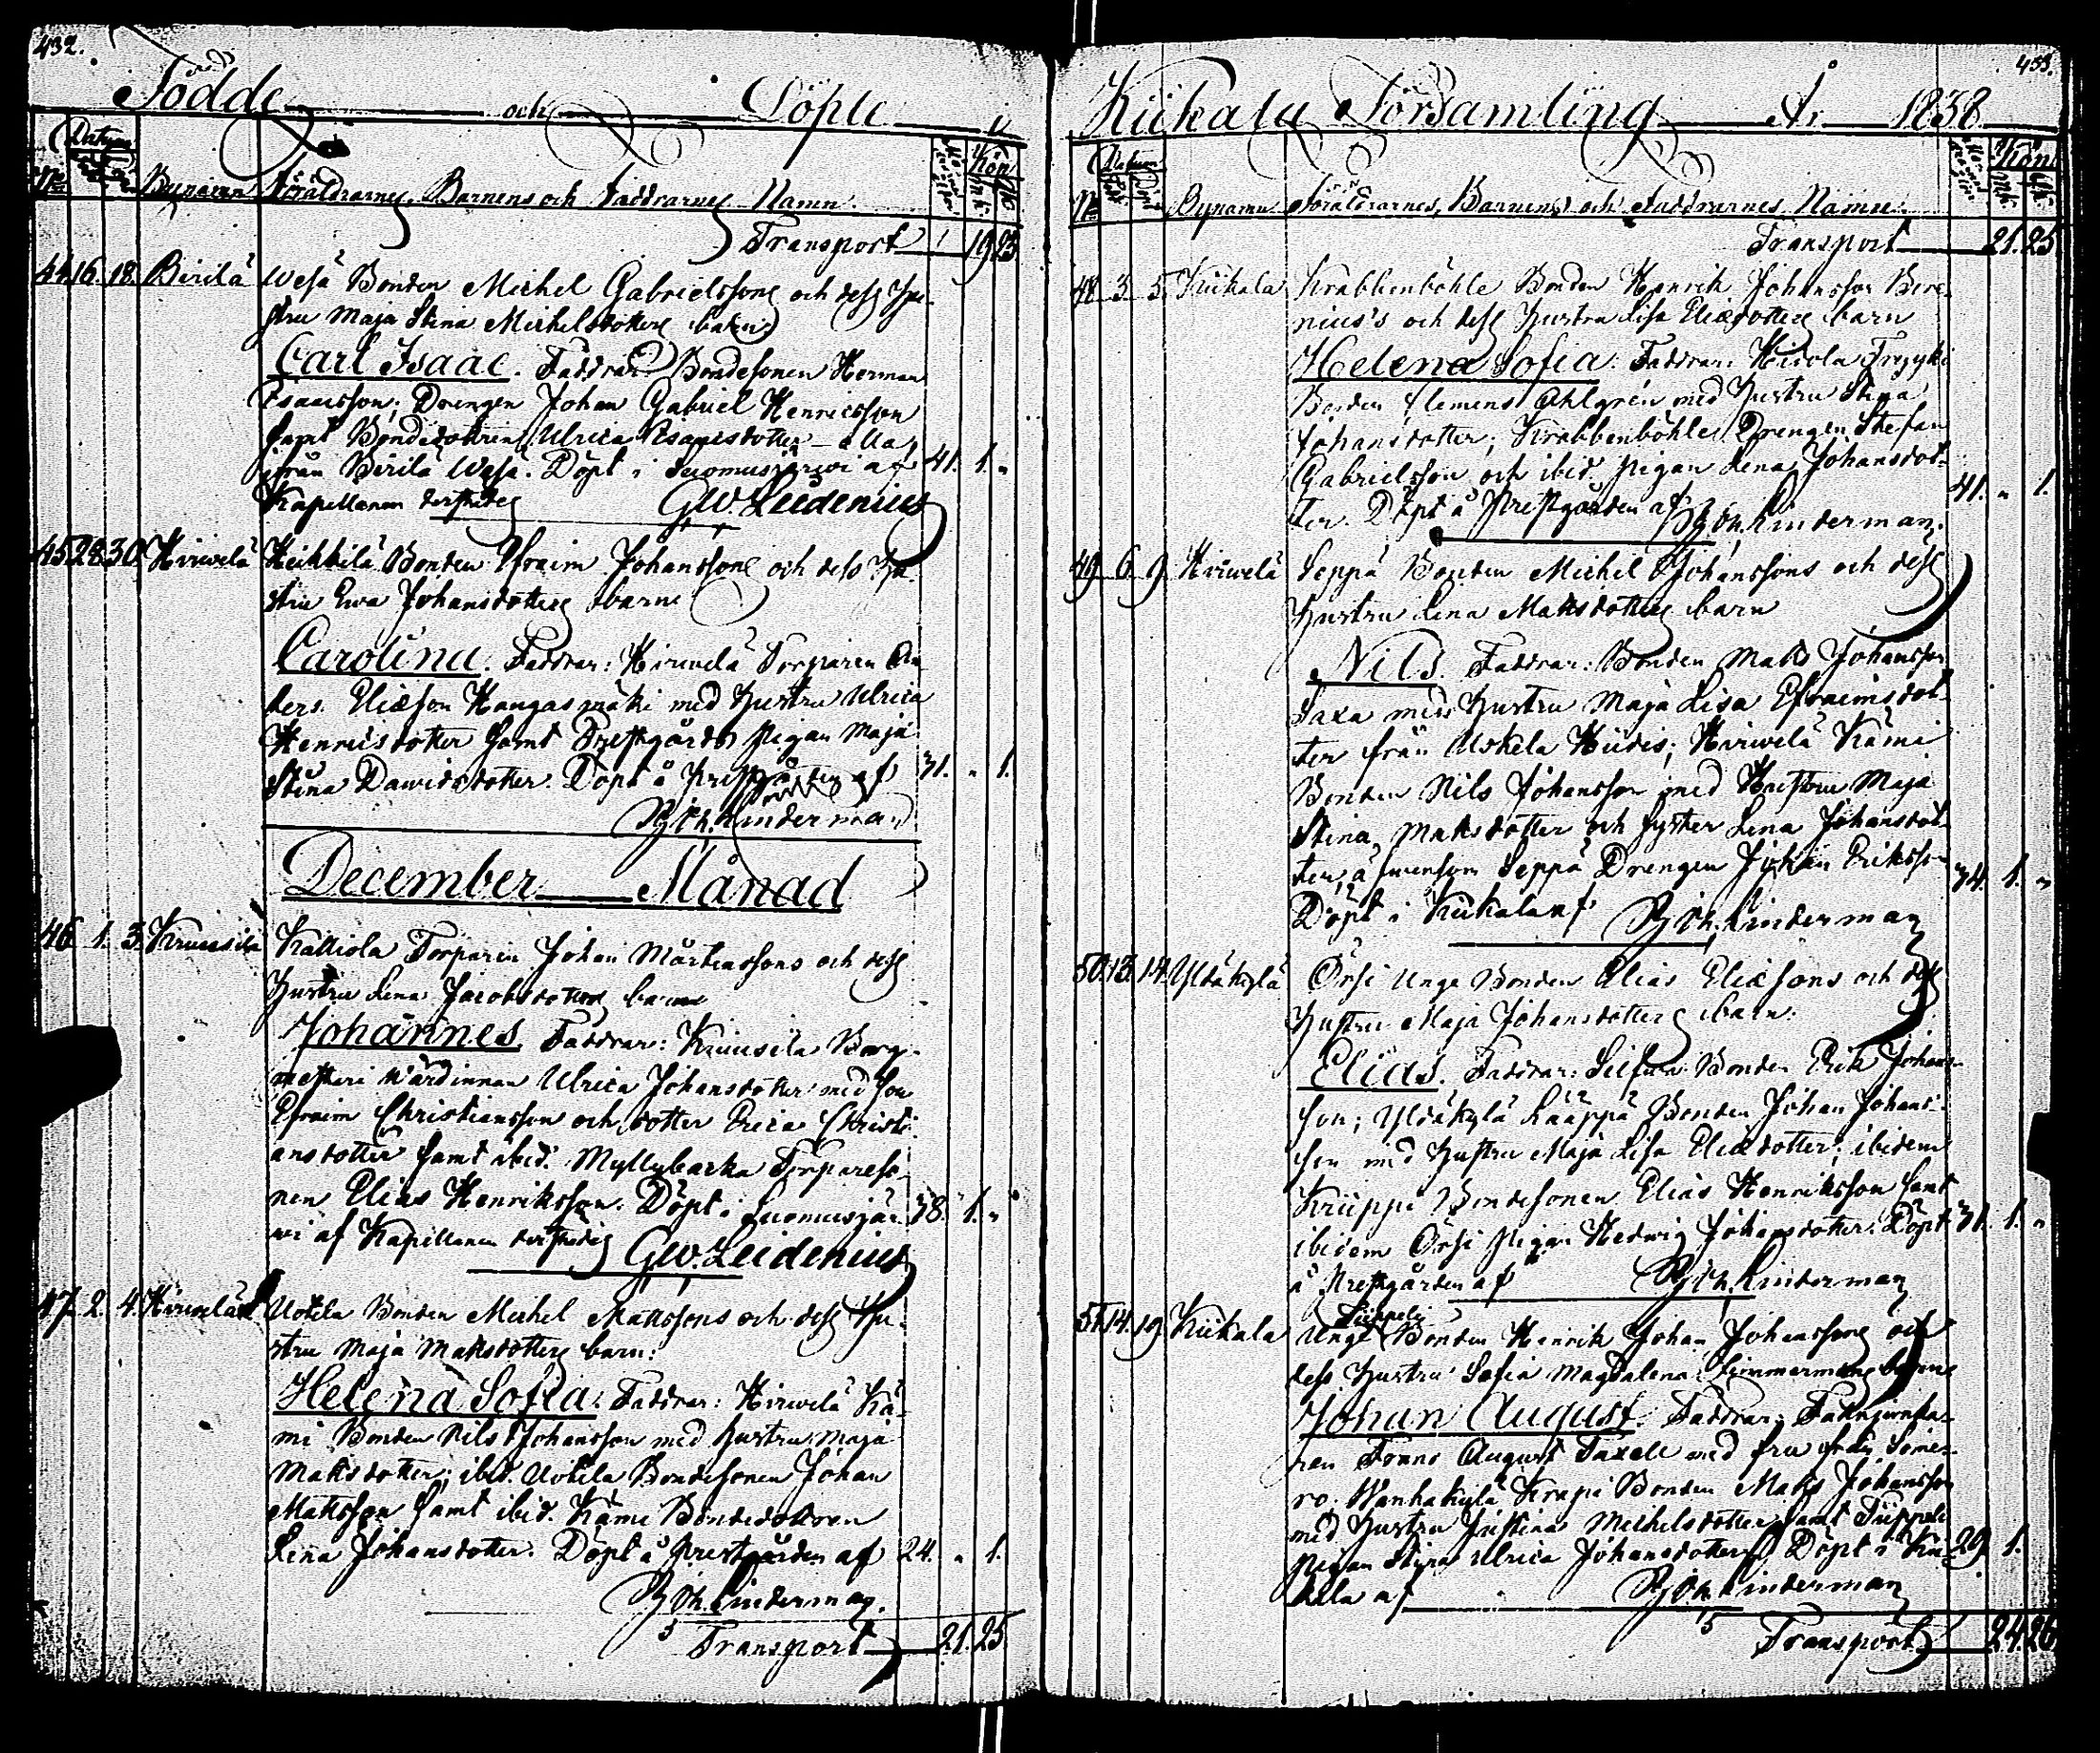 432.
Födde och Döpte i
No Datum Bynamn Föräldrarnes, Barnens och Faddrarnes Namn. Kön
Transport 19 23
44. 16. 18. Pirilä Wesä Bonden Michel Gabrielssons och dess Hu-
stru Maja Stina Michelsdotters barn
Carl Isaac. Faddrar: Bondesonen Herman
Isaacsson; Drengen Johan Gabriel Henricsson
samt Bondedottren Ulrica Isaacsdotter alla
ifrån Pirilä Wesä. Döpt i Suomusjärwi af 41. 1. "
Kapellanen derstädes GW. Leidenius
45. 28. 30. Hirwelä Heikkilä Bonden Efraim Johanssons och dess Hu-
stru Ewa Johansdotters barn
Carolina. Faddrar: Hirwelä Torparen An-
ders Eliæson Kangasmäki med hustru Ulrica
Henricsdotter samt Prestgårds Pigan Maja
Stina Dawidsdotter. Döpt å Prestgården af 31. " 1.
Linderman
December Månad
46. 1. 3. Kruusila Kalliola Torparen Johan Mårtenssons och dess
Hustru Lena Jacobsdotters barn
Johannes. Faddrar: Kruusila Borg-
mesteri Wärdinnan Ulrica Johansdotter med son
Efraim Christiansson och dotter Erica Christi-
ansdotter samt ibid. Myllybacka Torpareso-
nen Elias Henriksson. Döpt i Suomusjär- 38. 1. "
wi af Kapellanen derstädes GW. Leidenius
47. 2. 4. Hirwelä Uotila Bonden Michel Mattssons och dess Hu-
stru Maja Mattsdotters barn:
Helena Sofia. Faddrar: Hirwelä Kä-
mi Bonden Nils Johansson med hustru Maja
Mattsdotter; ibid. Uotila Bondesonen Johan
Mattsson samt ibid. Kämi Bondedottren
Lena Johansdotter. Döpt å Prestgården af 24. " 1.
Linderman.
Transport 21. 25
433.
Kiikala Församling År 1838
No Datum Bynamn Föräldrarnes, Barnens och Faddrarnes Namn. Kön
Transport 21. 25
48 3. 5. Kiikala Krabbenböhle Bonden Henrik Johansson Bere-
nius's och dess Hustru Lisa Eliædotters barn
Helena Sofia. Faddrar: Hirola
Bonden Clemens Ahlgrén med hustru Stina
Johansdotter; Krabbenböhle Drengen Stefan
Gabrielsson och ibid. Pigan Lena Johansdot-
ter. Döpt å Prestgården af 41. " 1.
Linderman.
49 6. 9. Hirwelä Seppä Bonden Michel Johanssons och dess
Hustru Lena Mattsdotters barn
Nils. Faddrar: Bonden Matts Johansson
Saxa med hustru Maja Lisa Efraimsdot-
ter från Uskela Hiidis; Hirwelä Kämi
Bonden Nils Johansson med Hustru Maja
Stina Mattsdotter och syster Lena Johansdot-
ter, äfwensom Seppä Drengen Johan Eriksson 34. 1. "
Döpt i Kiikala af Linderman
50. 13. 14. Yldäkylä Örsi Unge Bonden Elias Eliæsons och dess
Hustru Maja Johansdotters barn:
Elias. Faddrar: Bonden Erik Johans-
son; Yldäkylä Lääppä Bonden Johan Johans-
son med hustru Maja Lisa Eliædotter; ibidem
Kruppi Bondesonen Elias Henriksson samt
ibidem Örsi Pigan Hedwig Johansdotter. Döpt 31. 1. "
å Prestgården af Linderman
51. 14. 19. Kiikala Unge Bonden Henrik Johan Johanssons och
dess Hustru Sofia Magdalena Timmermans barn
Johan August. Faddrar: Fanjunka-
ren Frans August Taxell med fru från Some-
ro. Wanhakylä Krapi Bonden Matts Johansson
med hustru Justina Michelsdotter samt
Pigan Ulrica Johansdotter. Döpt i Kii- 29. 1.
kala af Linderman
Transport 24. 26